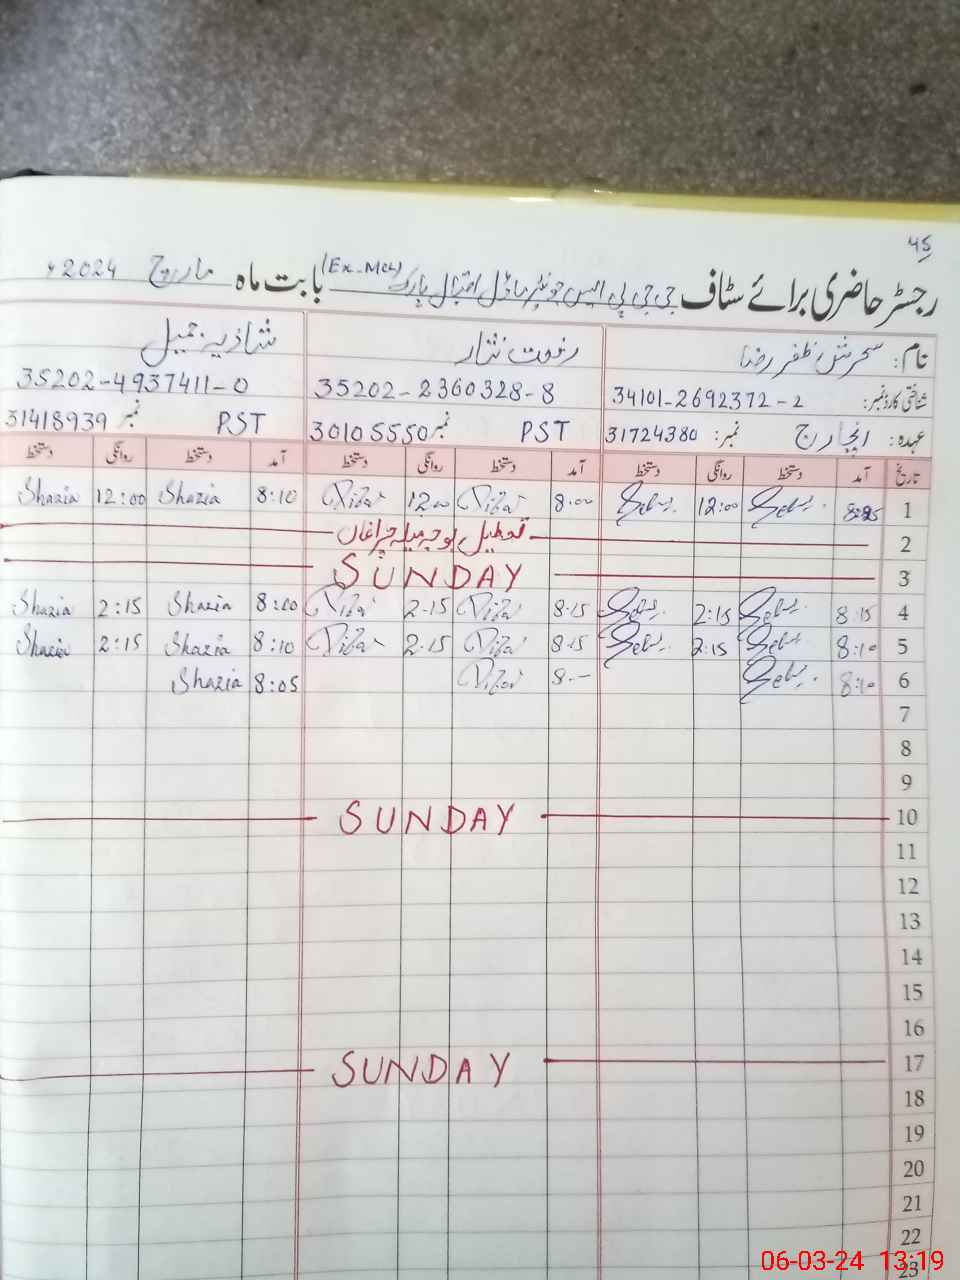 45
رجسٹر حاضری برائے سٹاف جی جی پی ایس جونیئر ماڈل اقبال پارک (Ex-MCL) بابت ماہ مارچ 2024ء
نام: سحرش ظفر رضا رفعت نثار شازیہ جمیل
شناختی کارڈ نمبر: 34101-2692372-2 35202-2360328-8 35202-4937411-0
عہدہ: انچارج نمبر: 31724380 PST نمبر 30105550 PST نمبر 31418939
تاریخ آمد دستخط روانگی دستخط آمد دستخط روانگی دستخط آمد دستخط روانگی دستخط
1 12:00 8:00 12:00 8:10 Shazia 12:00 Shazia
2 تعطیل بوجہ میلہ چراغاں
3 SUNDAY
4 8:15 2:15 8:15 2:15 8:00 Shazia 2:15 Shazia
5 8:10 2:15 8:15 2:15 8:10 Shazia 2:15 Shazia
6 8:10 8:- 8:05 Shazia
7
8
9
10 SUNDAY
11
12
13
14
15
16
17 SUNDAY
18
19
20
21
22
23
06-03-24 13:19